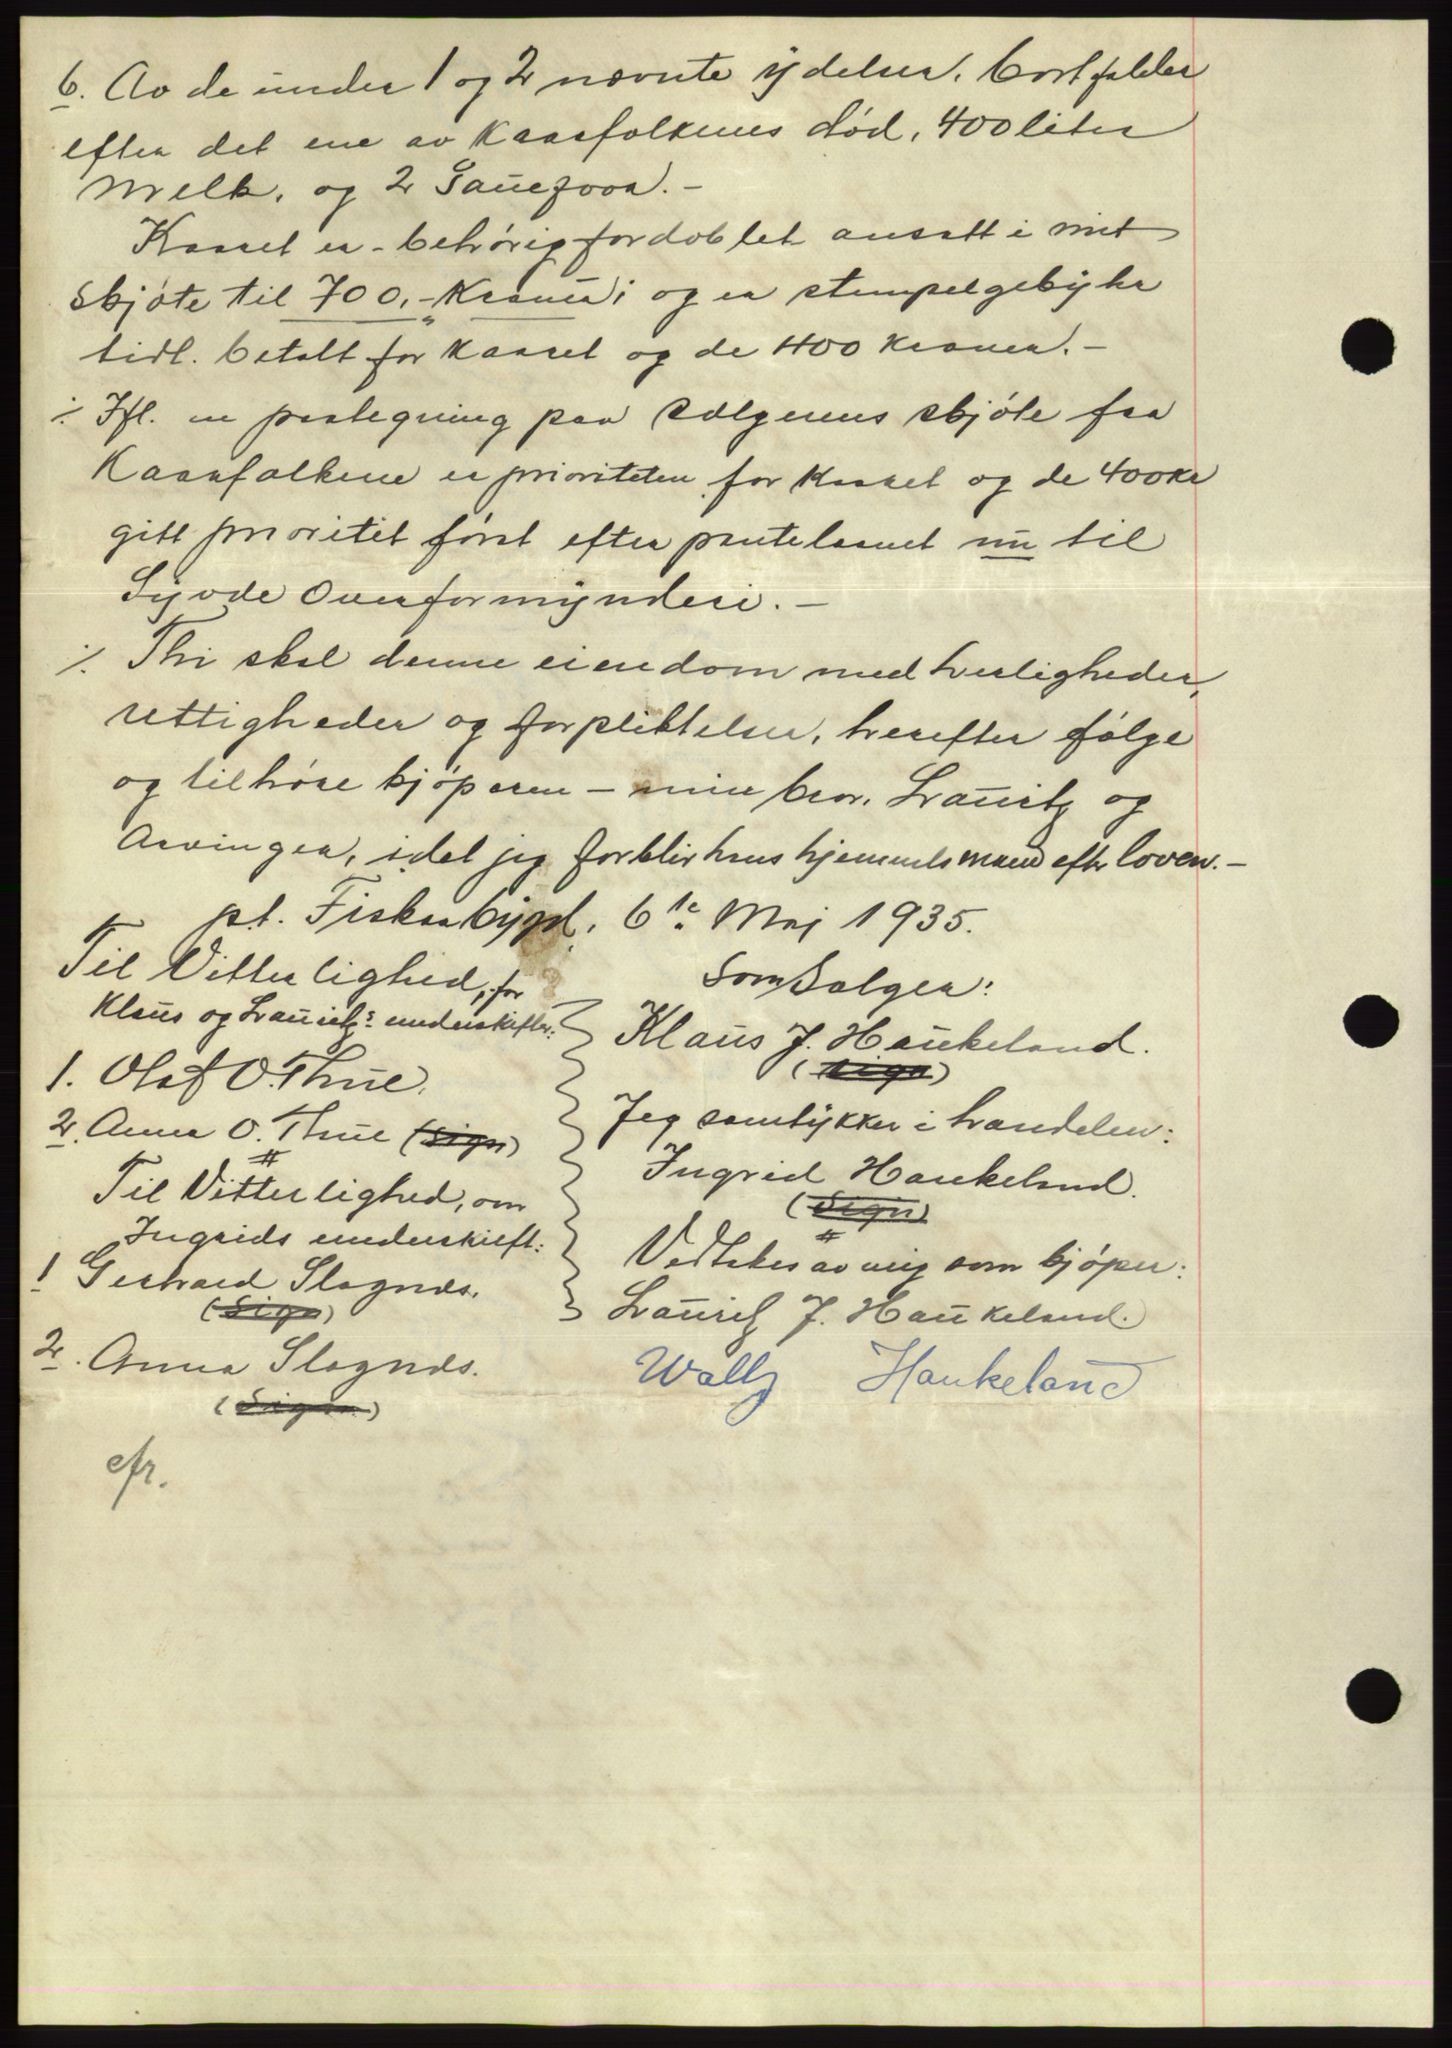 6. Av de under 1 og 2 nævnte ydelser, bortfalder
efter det ene av Kaarfolkenes død, 400 liter
Melk, og 2 Sauefoor.-
Kaaret er - behørig fordoblet ansatt i mit
skjøte til 700,- Kroner; og er stempelgebyhr
tidl. betalt for Kaaret og de 400 kroner.-
⁒ Ifl. en paategning paa Sælgerens skjøte fra
Kaarfolkene er prioriteten for Kaaret og de 400 kr
gitt prioritet først efter pantelaanet nu til
Syvde Overformynderi.-
⁒ Thi skal denne eiendom med herligheder,
rettigheder og forpliktelser, herefter følge
og tilhøre kjøperen - min bror, Lauritz og
Arvinger, idet jeg forblir hans hjemmelsmand efter loven.-
pt. Fiskaabygd, 6te Maj 1935.
Til Vitterlighed, for
Klaus og Lauritz's underskifter:
1. Olaf O. Thue.
2. Anna O. Thue (Sign)
Til Vitterlighed, om
Ingrids underskrift:
1 Gerhard Slagnes.
(Sign)
2. Anna Slagnes.
(Sign)
cfr.
Som Sælger:
Klaus J. Haukeland.
(Sign)
Jeg samtykker i handelen:
Ingrid Haukeland.
(Sign)
Vedtakes av mig som kjøper:
Lauritz J. Haukeland.
Wally Haukeland